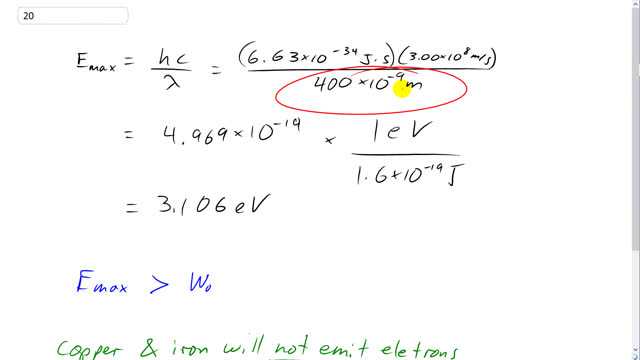 20
Emax = hc / λ = (6.63×10⁻³⁴ J·s)(3.00×10⁸ m/s) / 400 ×10⁻⁹ m
= 4.969×10⁻¹⁹ × 1eV / 1.6×10⁻¹⁹ J
= 3.106 eV
Emax > W₀
copper & iron will not emit eletrons